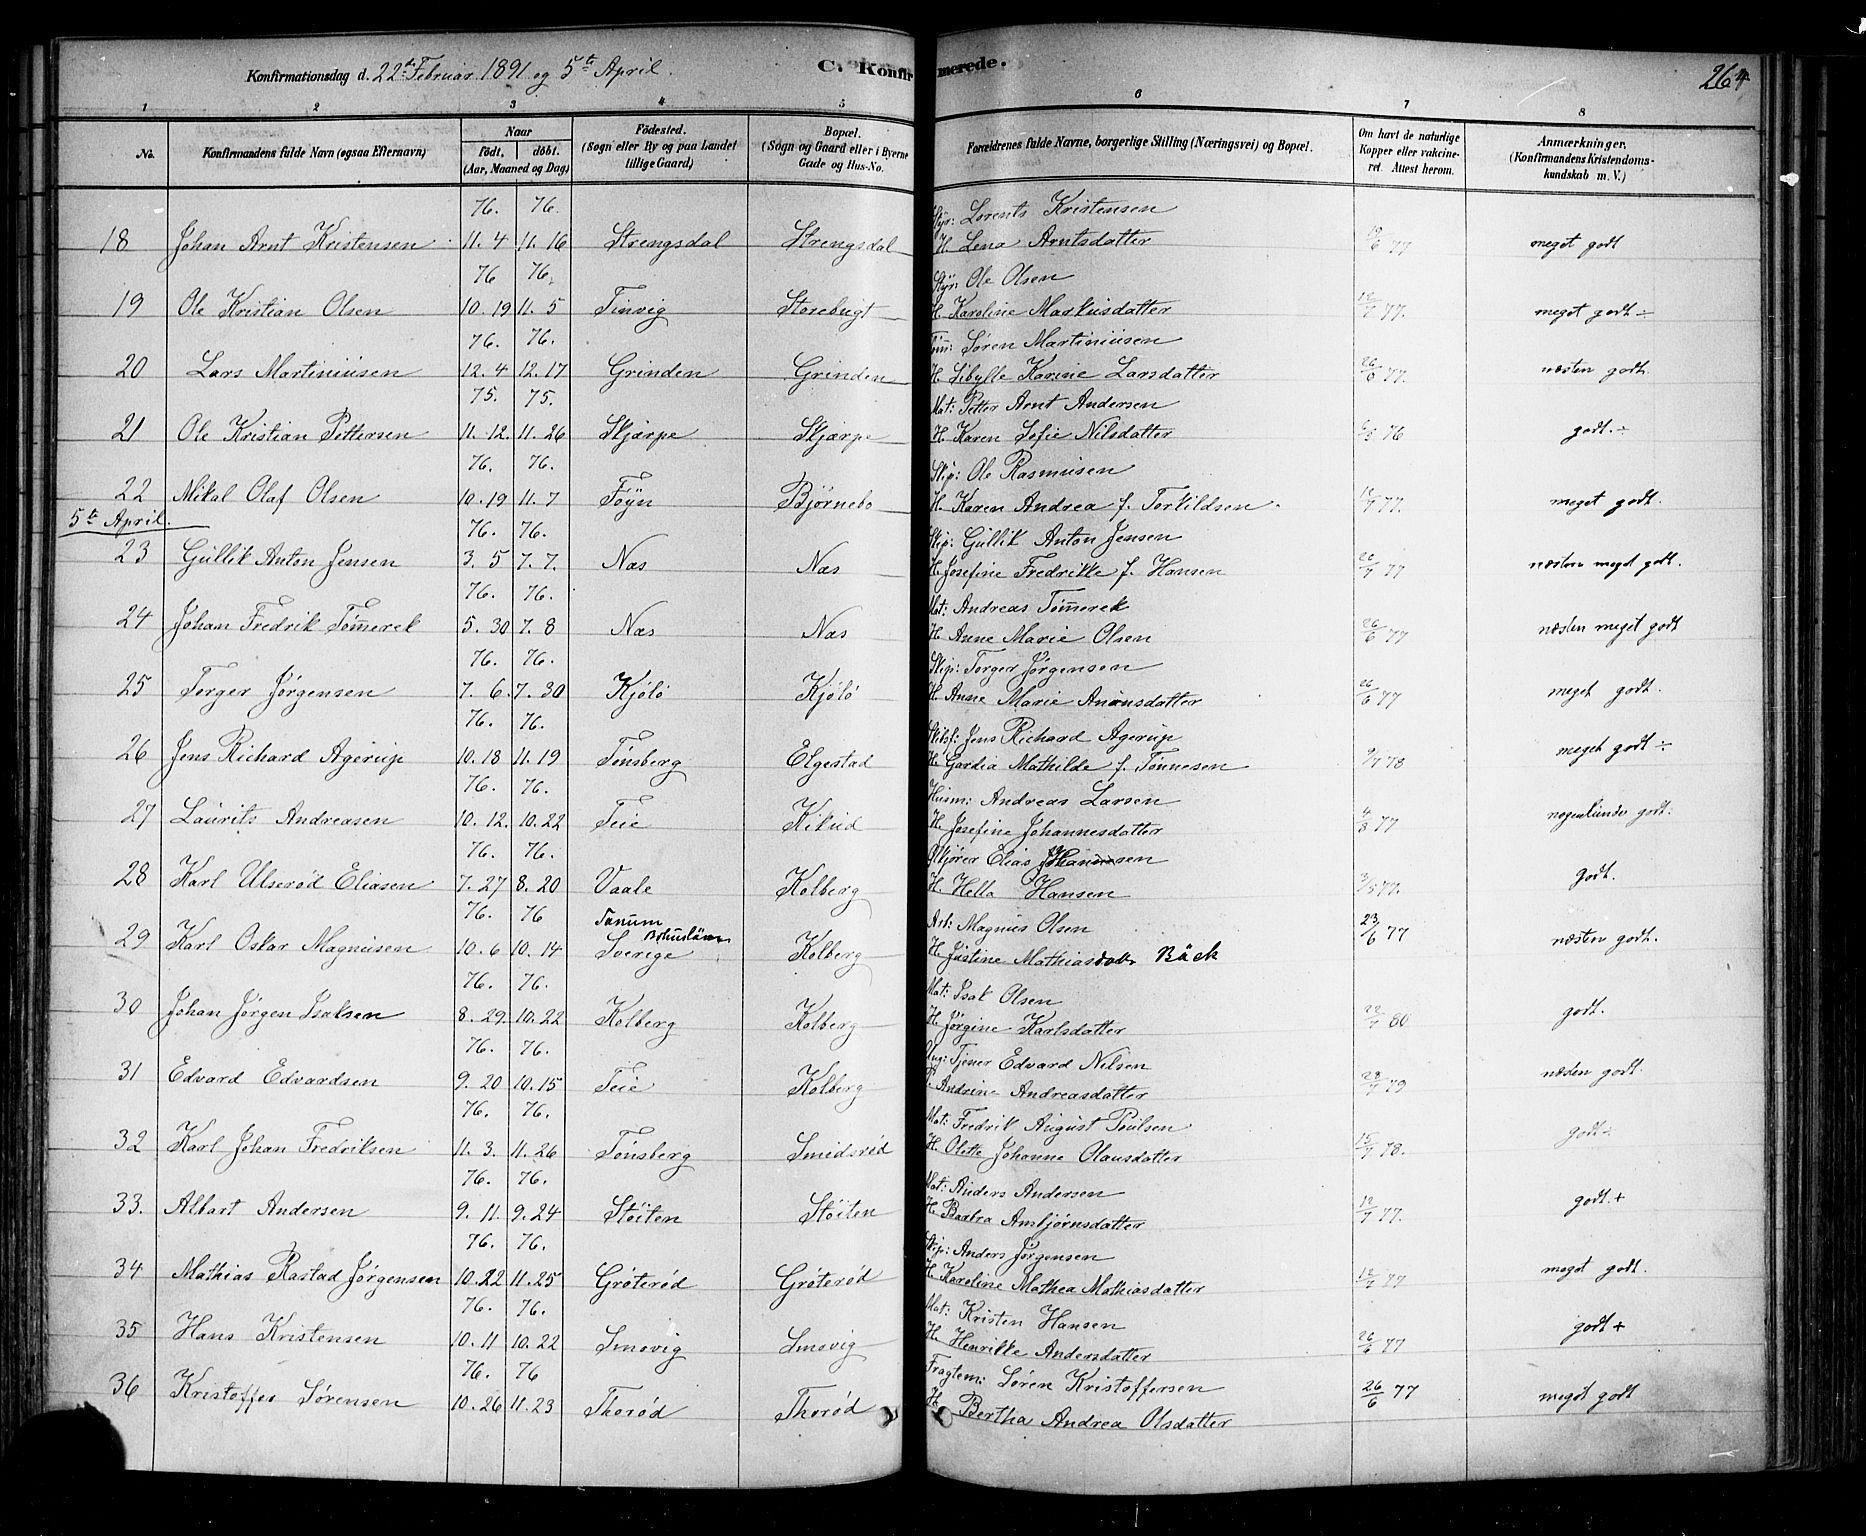 Konfirmationsdag d. 22de Februar 1891 og 5te April.
C. Konfirmerede.
264
1 2 3 4 5 6 7 8
No. Konfirmandens fulde Navn (ogsaa Efternavn) Naar Födt. döbt. (Aar, Maaned og Dag) Födested. (Sogn eller By og paa Landet tillige Gaard) Bopæl. (Sogn og Gaard eller i Byerne Gade og Hus-No. Forældrenes fulde Navne, borgerlige Stilling (Næringsvei) og Bopæl. Om havt de naturlige Kopper eller vakcineret. Attest herom. Anmærkninger. (Konfirmandens Kristendomskundskab m. V.)
76. 76. Styr: Lorents Kristensen
18 Johan Arnt Kristensen 11. 4 11. 16 Strengsdal Strengsdal H. Lena Arntsdatter 19/6 77 meget godt
76 76. Styr: Ole Olsen
19 Ole Kristian Olsen 10. 19 11. 5 Tinvig Storebugt H. Karoline Markusdatter 12/7 77. meget godt ÷
76. 76. Tøm: Søren Martiniusen
20 Lars Martiniusen 12. 4 12. 17 Grinden Grinden H. Sibylle Karine Larsdatter 26/6 77. næsten godt.
75. 75. Mat: Petter Arnt Andersen
21 Ole Kristian Pettersen 11. 12. 11. 26 Skjærpe Skjærpe H. Karen Sofie Nilsdatter 76 godt. ÷
76. 76. Skip: Ole Rasmusen
22 Mikal Olaf Olsen 10. 19 11. 7 Föyn Bjørnebo H. Karen Andrea f. Torkildsen 12/7 77. meget godt.
5te April.
76. 76. Skip: Gullik Anton Jensen
23 Gullik Anton Jensen 3. 5 7. 7. Næs Næs H. Josefine Fredrikke f. Hansen 26/7 77 næsten meget godt.
76. 76. Mat: Andreas Tömerek
24 Johan Fredrik Tömerek 5. 30 7. 8 Næs Næs H. Anne Marie Olsen 26/6 77 næsten meget godt
76. 76. Skip: Torger Jørgensen
25 Torger Jørgensen 7. 6. 7. 30 Kjölö Kjölö H. Anne Marie 26/6 77 meget godt.
76. 76. Jens Richard Agerup
26 Jens Richard Agerup 10. 18 11. 19 Tønsberg Elgestad H. Gardia Mathilde f. Tönnesen 9/7 78 meget godt ÷
76. 76. Husm: Andreas Larsen
27 Laurits Andreasen 10. 12. 10. 22 Teie Kikud H. Josefine Johannesdatter 4/8 77 nogenlunde godt:
76. 76. Elias
28 Karl Ulserød Eliasen 7. 27 8. 20 Vaale Kolberg H. Hella Hansen 3/5 77. godt.
76. 76 Tanum Bohuslän Arb: Magnus Olsen
29 Karl Oskar Magnusen 10. 6 10. 14 Sverige Kolberg H. Justine Mathiasdatr Bäck 23/6 77 næsten godt.
76. 76. Mat: Isak Olsen
30 Johan Jørgen Isaksen 8. 29. 10. 22 Kolberg Kolberg H. Jørgine Karlsdatter 22/7 80 godt.
76. 76. Ung: Tjener Edvard Nilsen
31 Edvard Edvardsen 9. 20 10. 15 Teie Kolberg Andrine Andreasdatter 28/7 79 næsten godt.
76. 76. Mat: Fredrik August Poulsen
32 Karl Johan Fredriksen 11. 3. 11. 26 Tønsberg Smidsrød H. Olette Johanne Olausdatter 15/7 78. godt ÷
76. 76. Mat: Anders Andersen
33. Albart Andersen 9. 11. 9. 24 Stöiten Stöiten H. Barbra Ansbjørnsdatter 12/7 77. godt. +
76. 76. Skip: Anders Jørgensen
34 Mathias Rastad Jørgensen 10. 22 11. 25 Gröterød Gröterød H. Karoline Mathea Mathiasdatter 12/7 77 meget godt.
76. 76. Mat: Kristen Hansen
35 Hans Kristensen 10. 11 10. 22 Smovig Smovig H. Henrikke Andersdatter 26/6 77 godt +
76. 76 Fragtem: Søren Kristoffersen
36 Kristoffer Sørensen 10. 26 11. 23 Thorød Thorød H. Bertha Andrea Olsdatter 26/6 77 meget godt